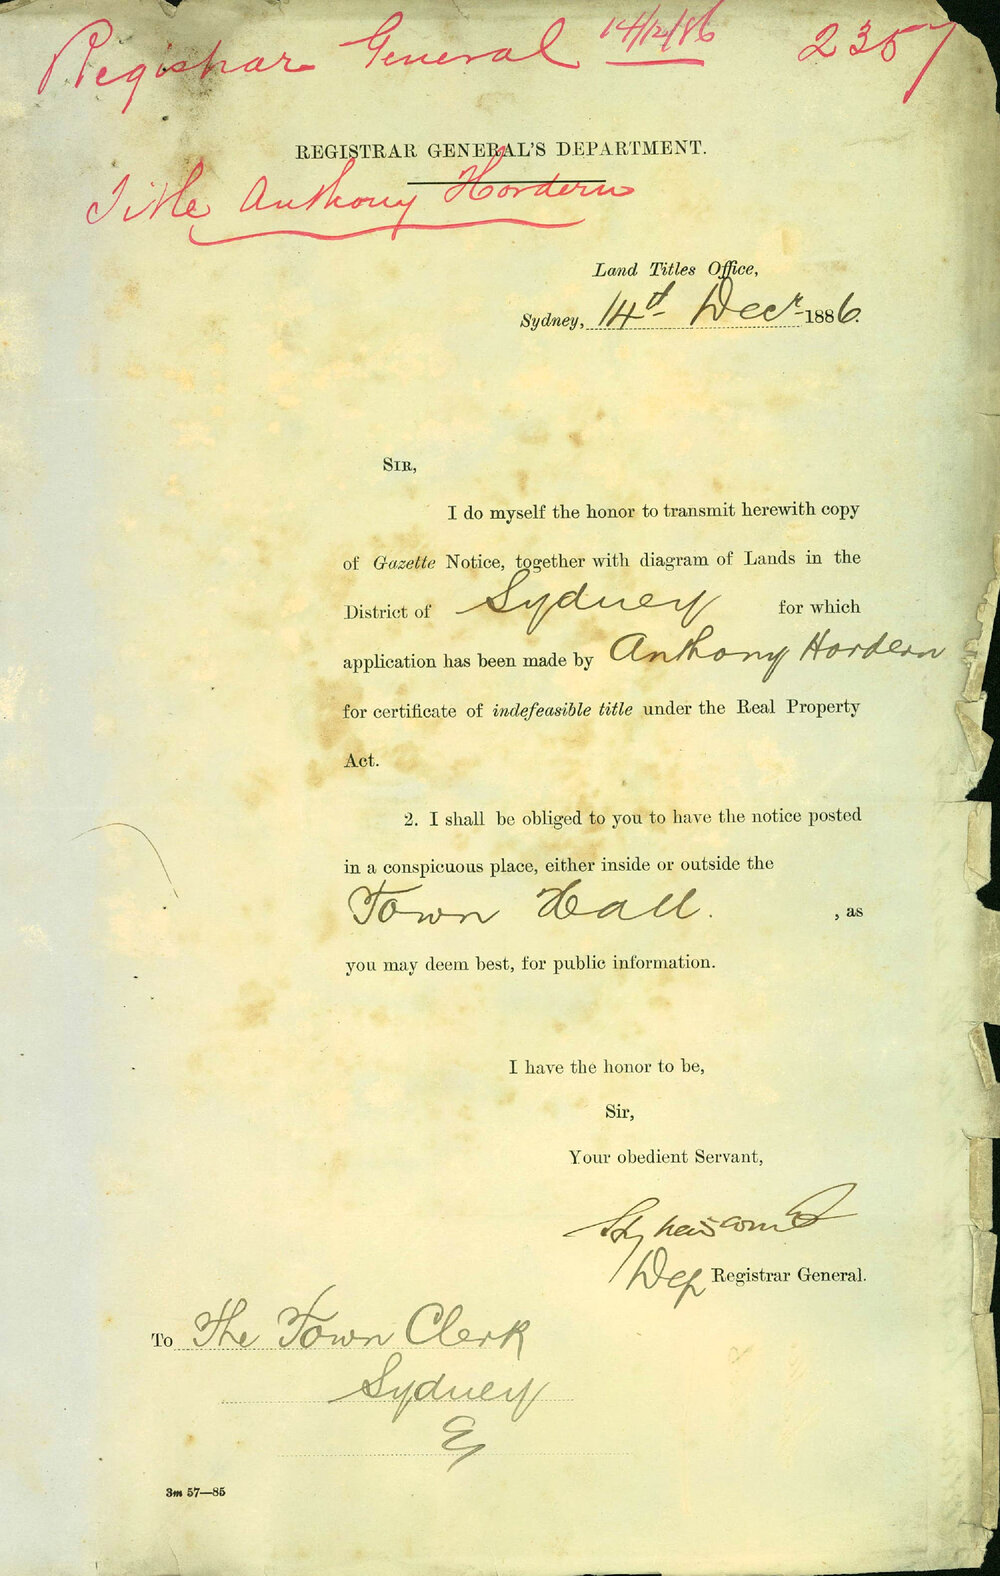 Registrar General 14/12/86 2357
REGISTRAR GENERAL'S DEPARTMENT.
Title Anthony Hordern
Land Titles Office,
Sydney, 14th Decr 1886.
SIR,
I do myself the honor to transmit herewith copy
of Gazette Notice, together with diagram of Lands in the
District of Sydney for which
application has been made by Anthony Hordern
for certificate of indefeasible title under the Real Property
Act.
2. I shall be obliged to you to have the notice posted
in a conspicuous place, either inside or outside the
Town Hall. , as
you may deem best, for public information.
I have the honor to be,
Sir,
Your obedient Servant,
Dep Registrar General.
To The Town Clerk
Sydney
3m 57—85